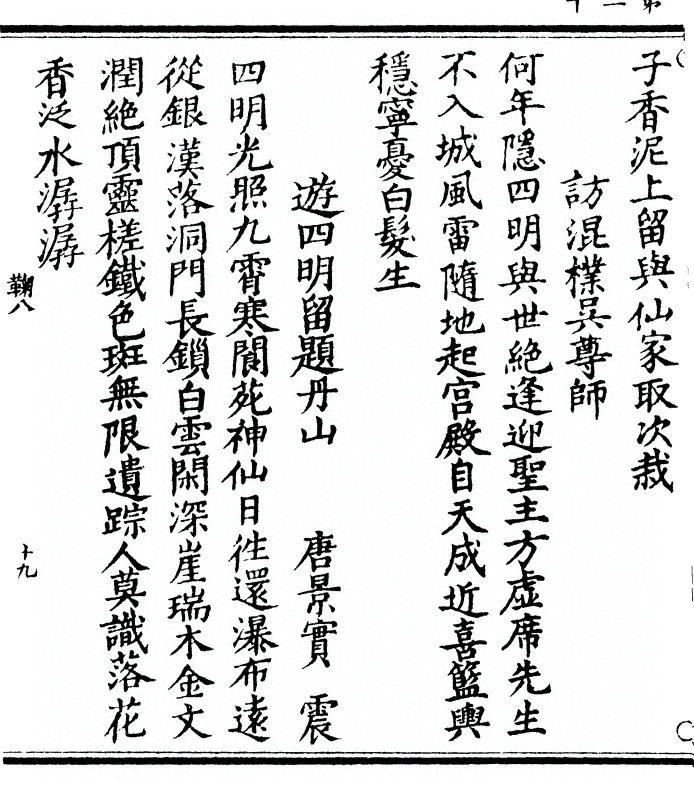 子香泥上留與仙家取次栽
訪混樸吳尊師
何年隱四明與世絶逢迎聖主方虛席先生
不入城風雷隨地起宫殿自天成近喜籃輿
穩寧憂白髮生
遊四明留題丹山 唐景實 震
四明光照九霄寒閬苑神仙日往還瀑布遠
從銀漢落洞門長鎖白雲閑深崖瑞木金文
潤絶頂靈槎鐵色斑無限遺踪人莫識落花
香泛水潺潺
鞠八
十九